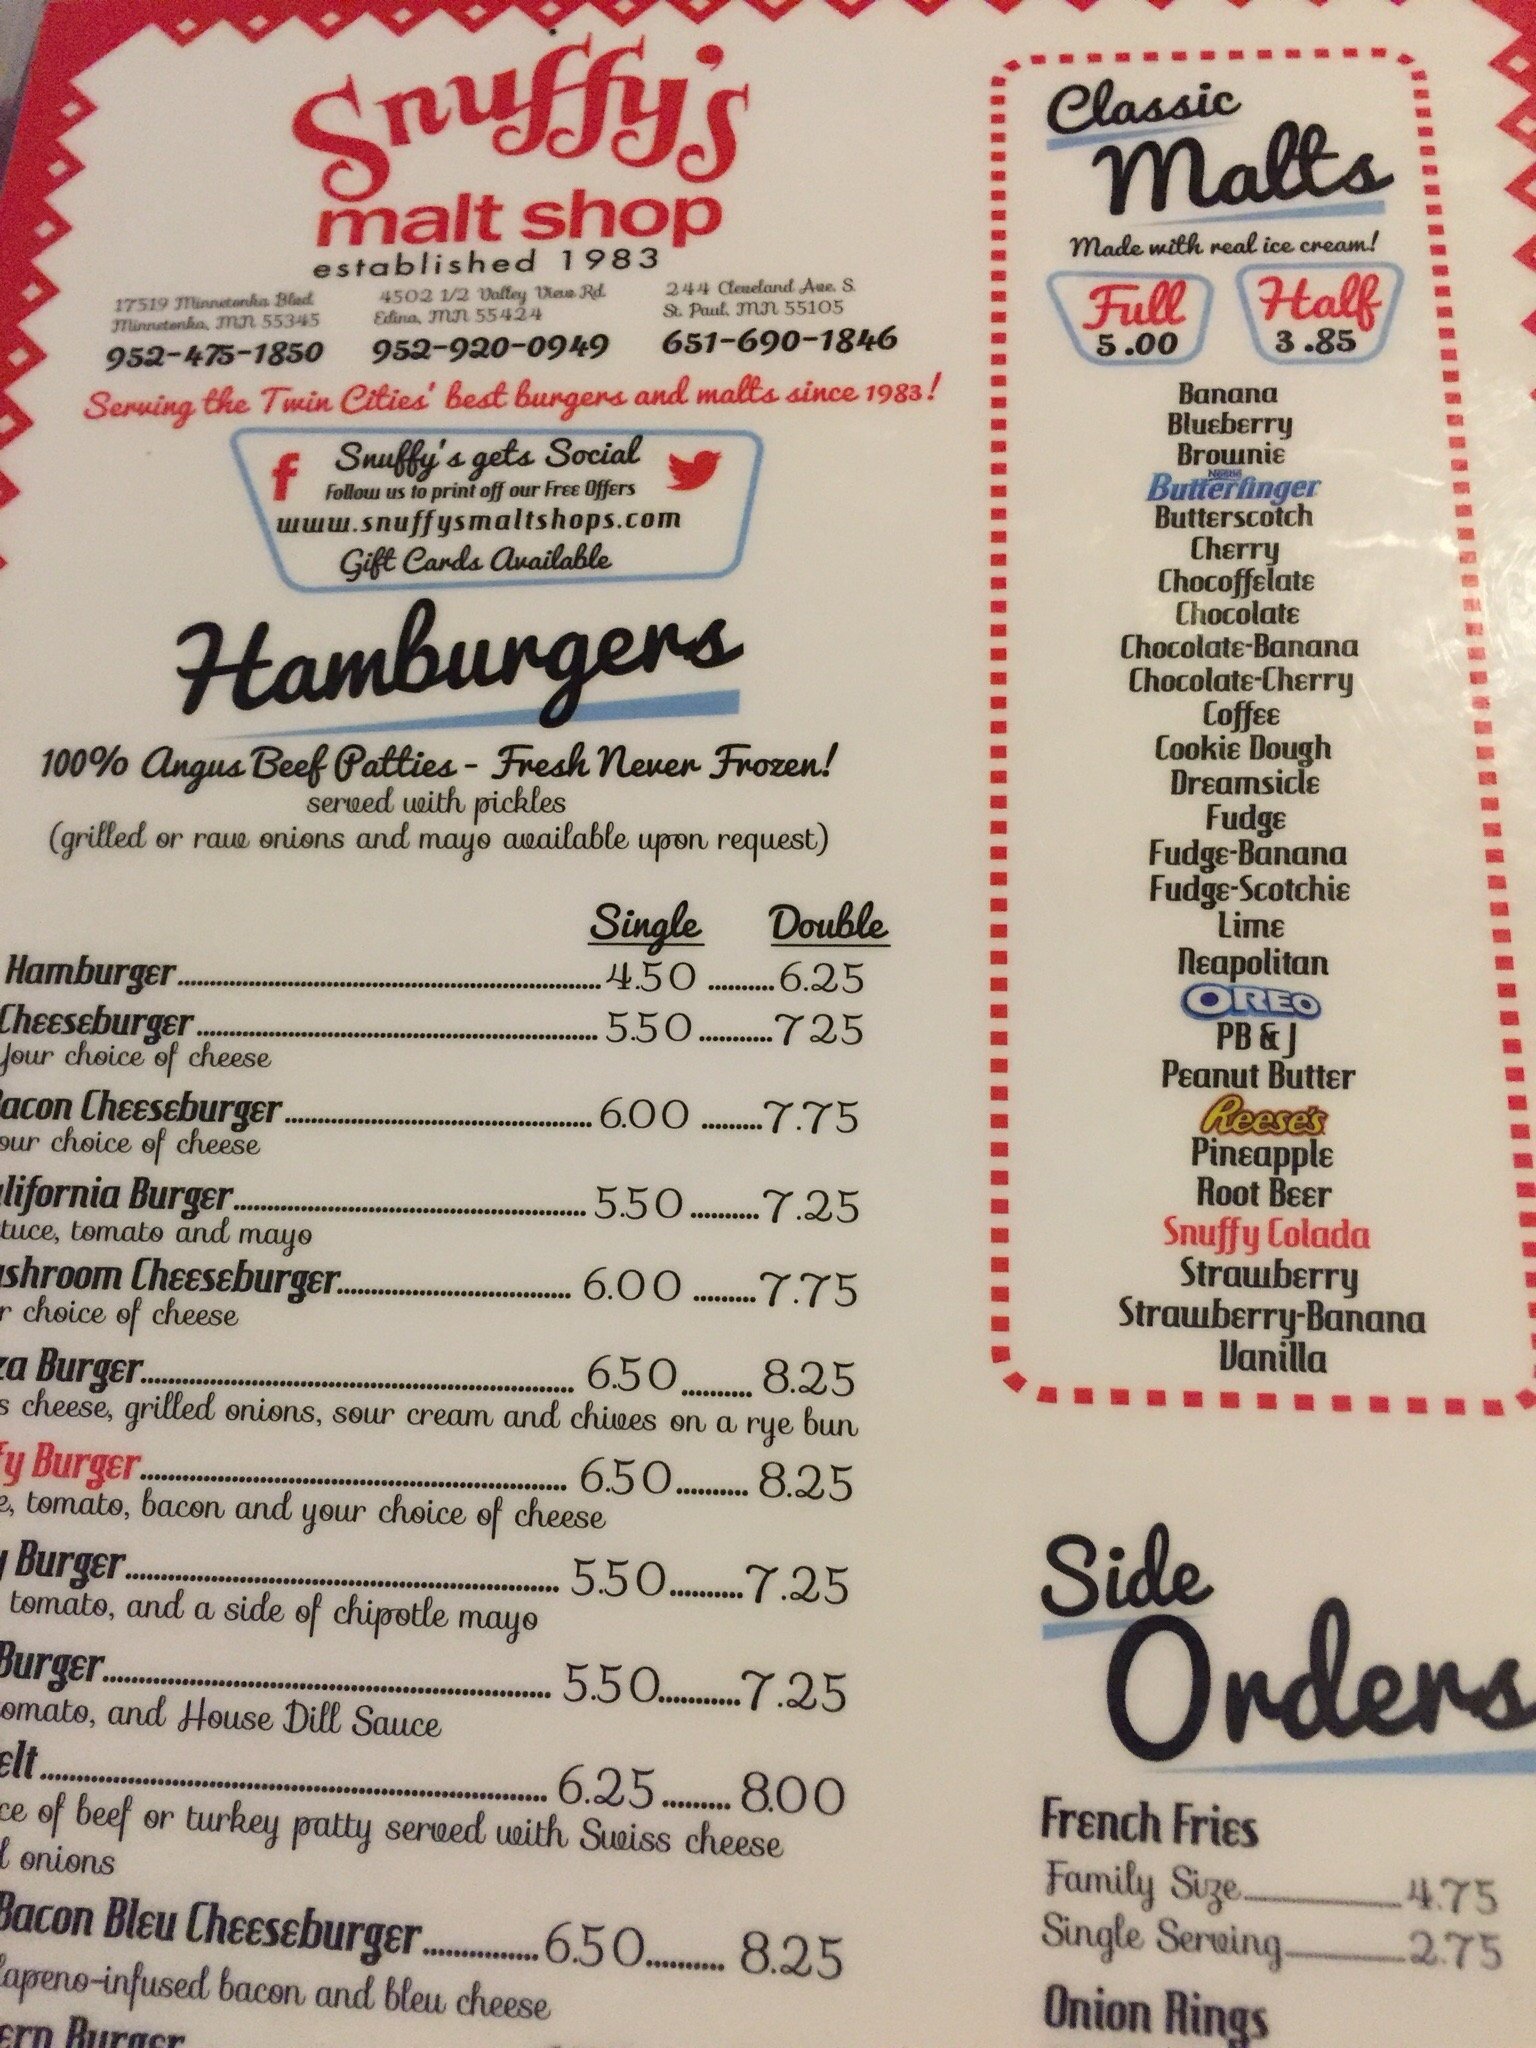 Snuffy's
malt shop
established 1983
17519 Minnetonka Blvd.
Minnetonka, MN 55345
952-475-1850
4502 1/2 Valley View Rd.
Edina, MN 55424
952-920-0949
244 Cleveland Ave. S.
St. Paul, MN 55105
651-690-1846
Serving the Twin Cities' best burgers and malts since 1983!
f Snuffy's gets Social
Follow us to print off our Free Offers
www.snuffysmaltshops.com
Gift Cards Available
Hamburgers
100% Angus Beef Patties - Fresh Never Frozen!
served with pickles
(grilled or raw onions and mayo available upon request)
Single Double
Hamburger 4.50 6.25
Cheeseburger 5.50 7 25
your choice of cheese
acon Cheeseburger 6.00 7.75
our choice of cheese
lifornia Burger 5.50 7.25
tuce, tomato and mayo
shroom Cheeseburger 6.00 7.75
r choice of cheese
za Burger 6.50 8.25
s cheese, grilled onions, sour cream and chives on a rye bun
fy Burger 6.50 8.25
e, tomato, bacon and your choice of cheese
y Burger 5.50 7.25
tomato, and a side of chipotle mayo
Burger 5.50 7.25
omato, and House Dill Sauce
elt 6.25 8.00
ce of beef or turkey patty served with Swiss cheese
d onions
Bacon Bleu Cheeseburger 6.50 8.25
lapeno-infused bacon and bleu cheese
ern Burger
Classic
Malts
Made with real ice cream!
Full
5.00
Half
3.85
Banana
Blueberry
Brownie
Nestle
Butterfinger
Butterscotch
Cherry
Chocoffelate
Chocolate
Chocolate-Banana
Chocolate-Cherry
Coffee
Cookie Dough
Dreamsicle
Fudge
Fudge-Banana
Fudge-Scotchie
Lime
Neapolitan
OREO
PB & J
Peanut Butter
Reese's
Pineapple
Root Beer
Snuffy Colada
Strawberry
Strawberry-Banana
Vanilla
Side
Orders
French Fries
Family Size 4.75
Single Serving 2.75
Onion Rings